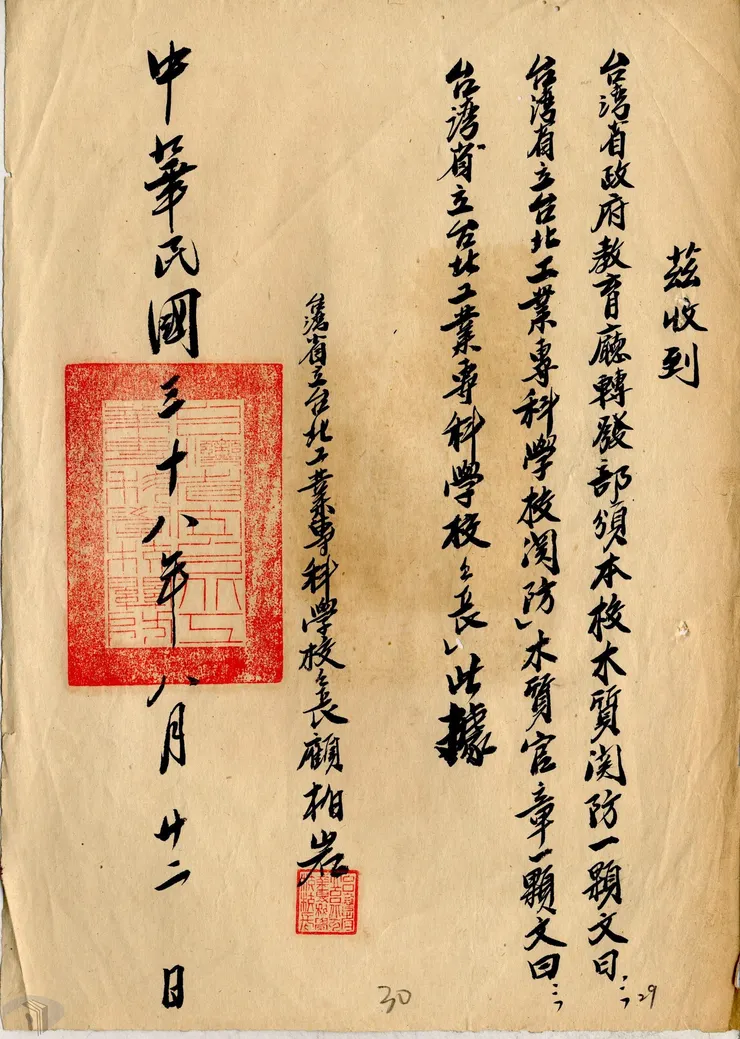 茲收到
台湾省政府教育廳轉發部頒本校木質関防一顆文曰:「
台湾省立台北工業專科學校関防」木質官章一顆文曰:「
台湾省立台北工業專科學校校長」此據
台湾省立台北工業專科學校校長顧柏岩
中華民國三十八年八月廿二日
29
30